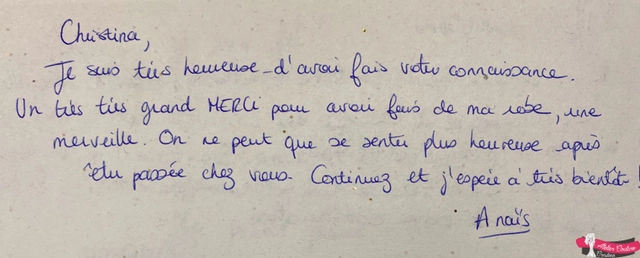 Christina,
Je suis très heureuse d'avoir fais votre connaissance.
Un très très grand MERCi pour avoir fais de ma robe, une
merveille. On ne peut que se sentir plus heureuse après
être passée chez vous. Continuez et j'espère à très bientôt !
Anaïs
Atelier Couture